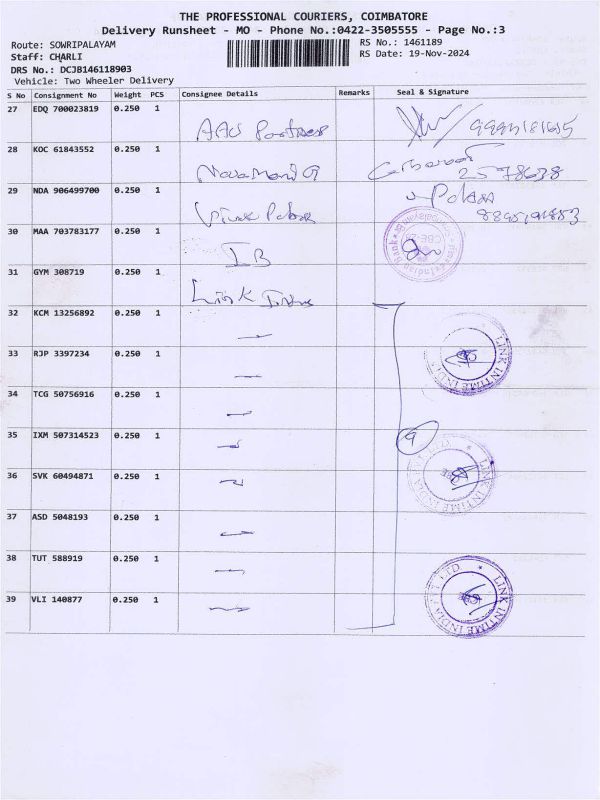 THE PROFESSIONAL COURIERS, COIMBATORE
Delivery Runsheet - MO - Phone No.:0422-3505555 - Page No.:3
Route: SOWRIPALAYAM
RS No.: 1461189
Staff: CHARLI
RS Date: 19-Nov-2024
DRS No.: DCJB146118903
Vehicle: Two Wheeler Delivery
S No Consignment No Weight PCS Consignee Details Remarks Seal & Signature
27 EDQ 700023819 0.250 1
28 KOC 61843552 0.250 1
29 NDA 906499700 0.250 1
30 MAA 703783177 0.250 1 IB
31 GYM 308719 0.250 1 Link
32 KCM 13256892 0.250 1
33 RJP 3397234 0.250 1
34 TCG 50756916 0.250 1
35 IXM 507314523 0.250 1 9
36 SVK 60494871 0.250 1
37 ASD 5048193 0.250 1
38 TUT 588919 0.250 1
39 VLI 140877 0.250 1
LINK INTIME INDIA PVT LTD